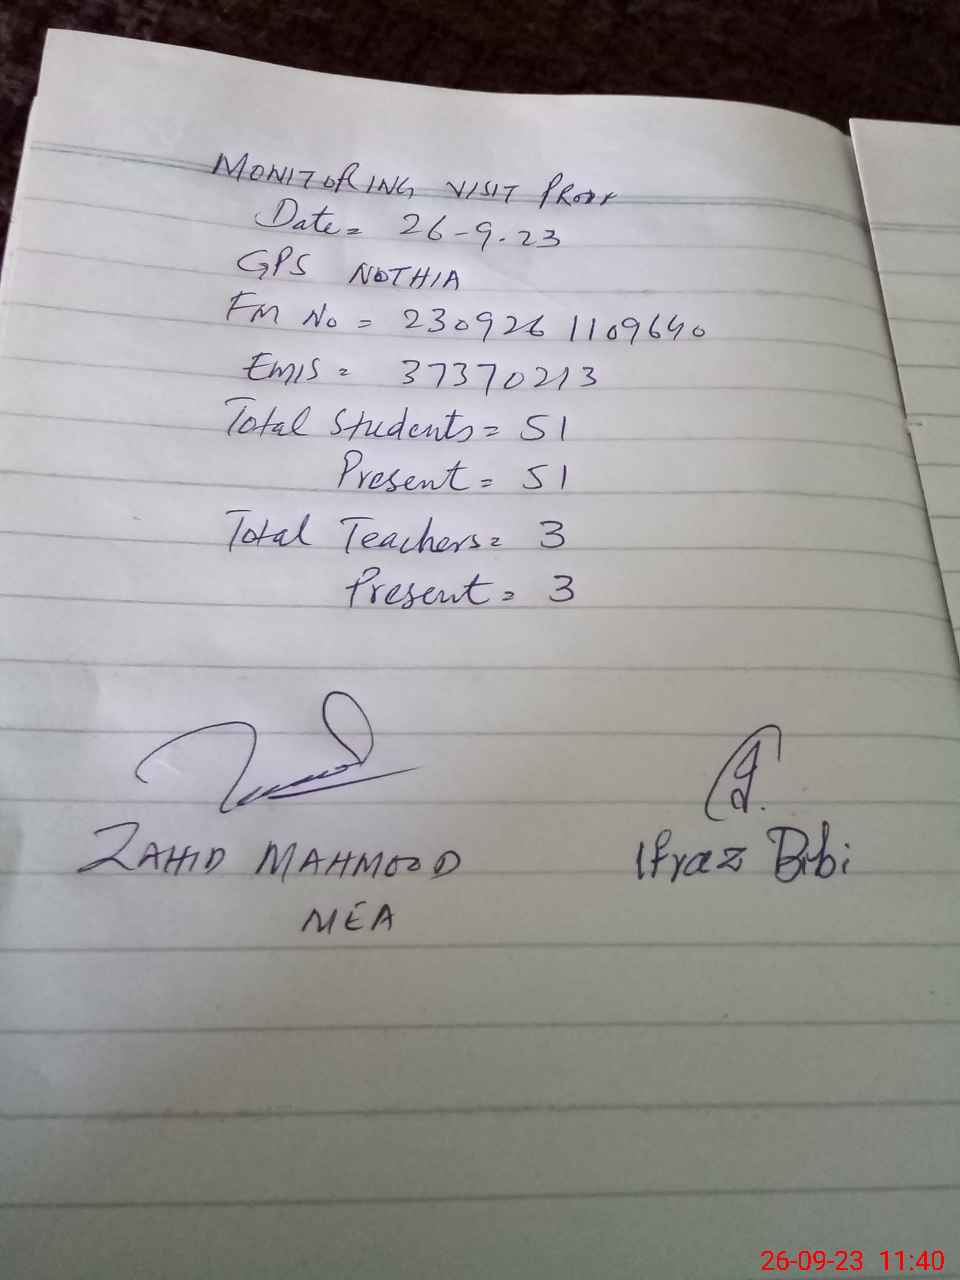 MONITORING VISIT PROOF
Date = 26-9-23
GPS NOTHIA
FM No = 230926 1109640
EMIS = 37370213
Total Students = 51
Present = 51
Total Teachers = 3
Present = 3
ZAHID MAHMOOD
Ifraz Bibi
MEA
26-09-23 11:40